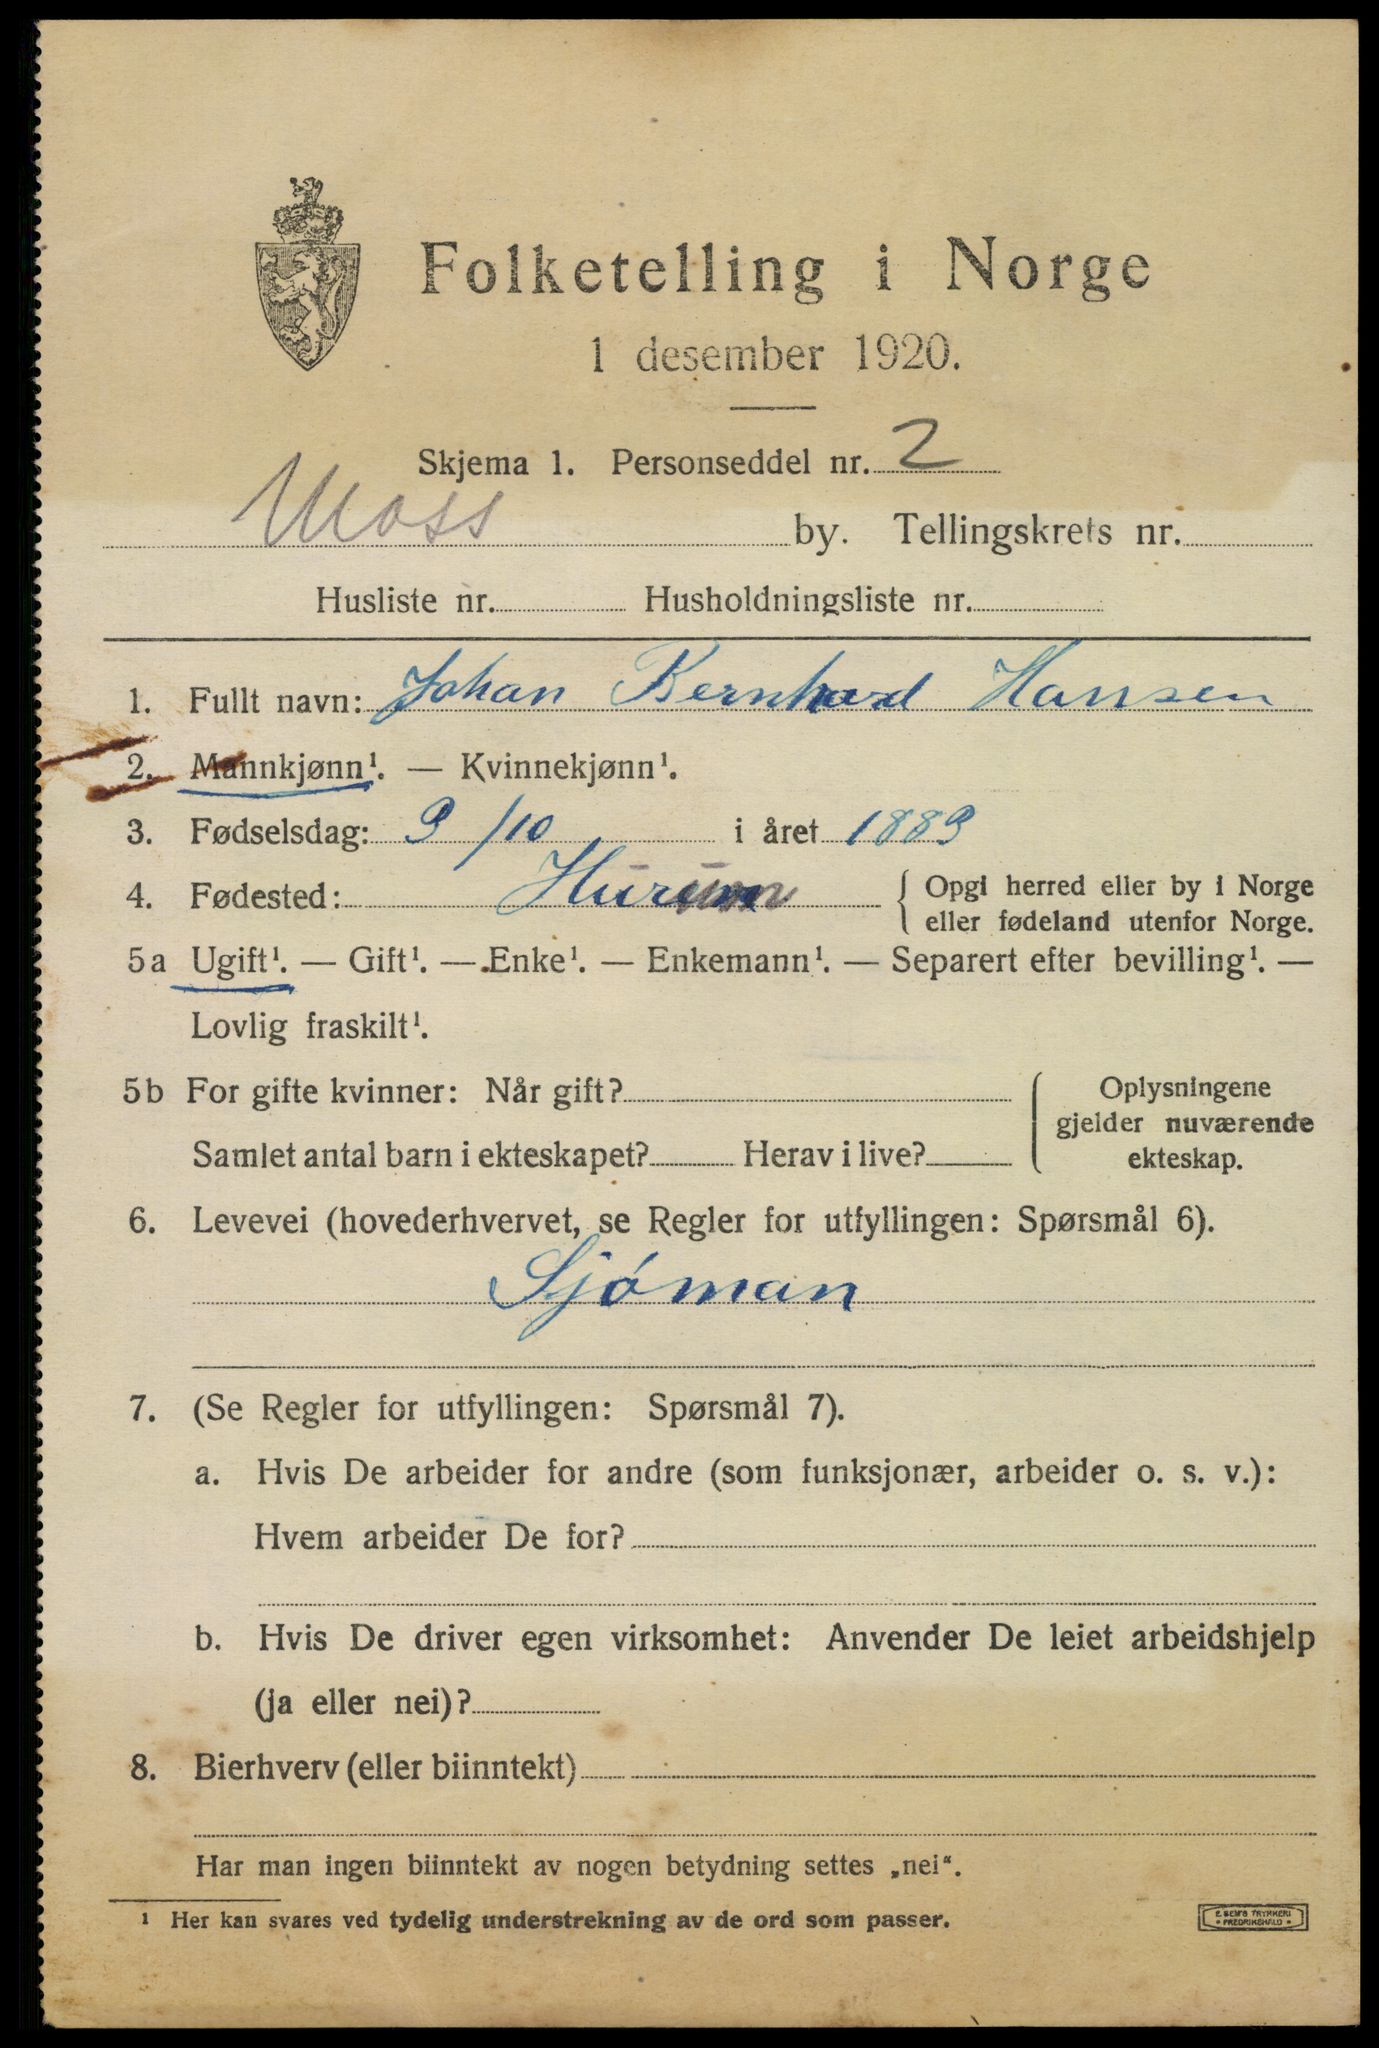 Folketelling i Norge
1 desember 1920.
Skjema 1. Personseddel nr. 2
Moss by. Tellingskrets nr.
Husliste nr. Husholdningsliste nr.
1. Fullt navn: Johan Bernhard Hansen
2. Mannkjønn¹. — Kvinnekjønn¹.
3. Fødselsdag: 9/10 i året 1889
4. Fødested: Hurum { Opgi herred eller by i Norge
eller fødeland utenfor Norge.
5a Ugift¹. — Gift¹. — Enke¹. — Enkemann¹. — Separert efter bevilling¹. —
Lovlig fraskilt¹.
5b For gifte kvinner: Når gift? { Oplysningene
gjelder nuværende
Samlet antal barn i ekteskapet? Herav i live? ekteskap.
6. Levevei (hovederhvervet, se Regler for utfyllingen: Spørsmål 6).
Sjóman
7. (Se Regler for utfyllingen: Spørsmål 7).
a. Hvis De arbeider for andre (som funksjonær, arbeider o. s. v.):
Hvem arbeider De for?
b. Hvis De driver egen virksomhet: Anvender De leiet arbeidshjelp
(ja eller nei)?
8. Bierhverv (eller biinntekt)
Har man ingen biinntekt av nogen betydning settes „nei“.
¹ Her kan svares ved tydelig understrekning av de ord som passer.
E SEM'S TRYKKERI
• FREDRIKSHALD •